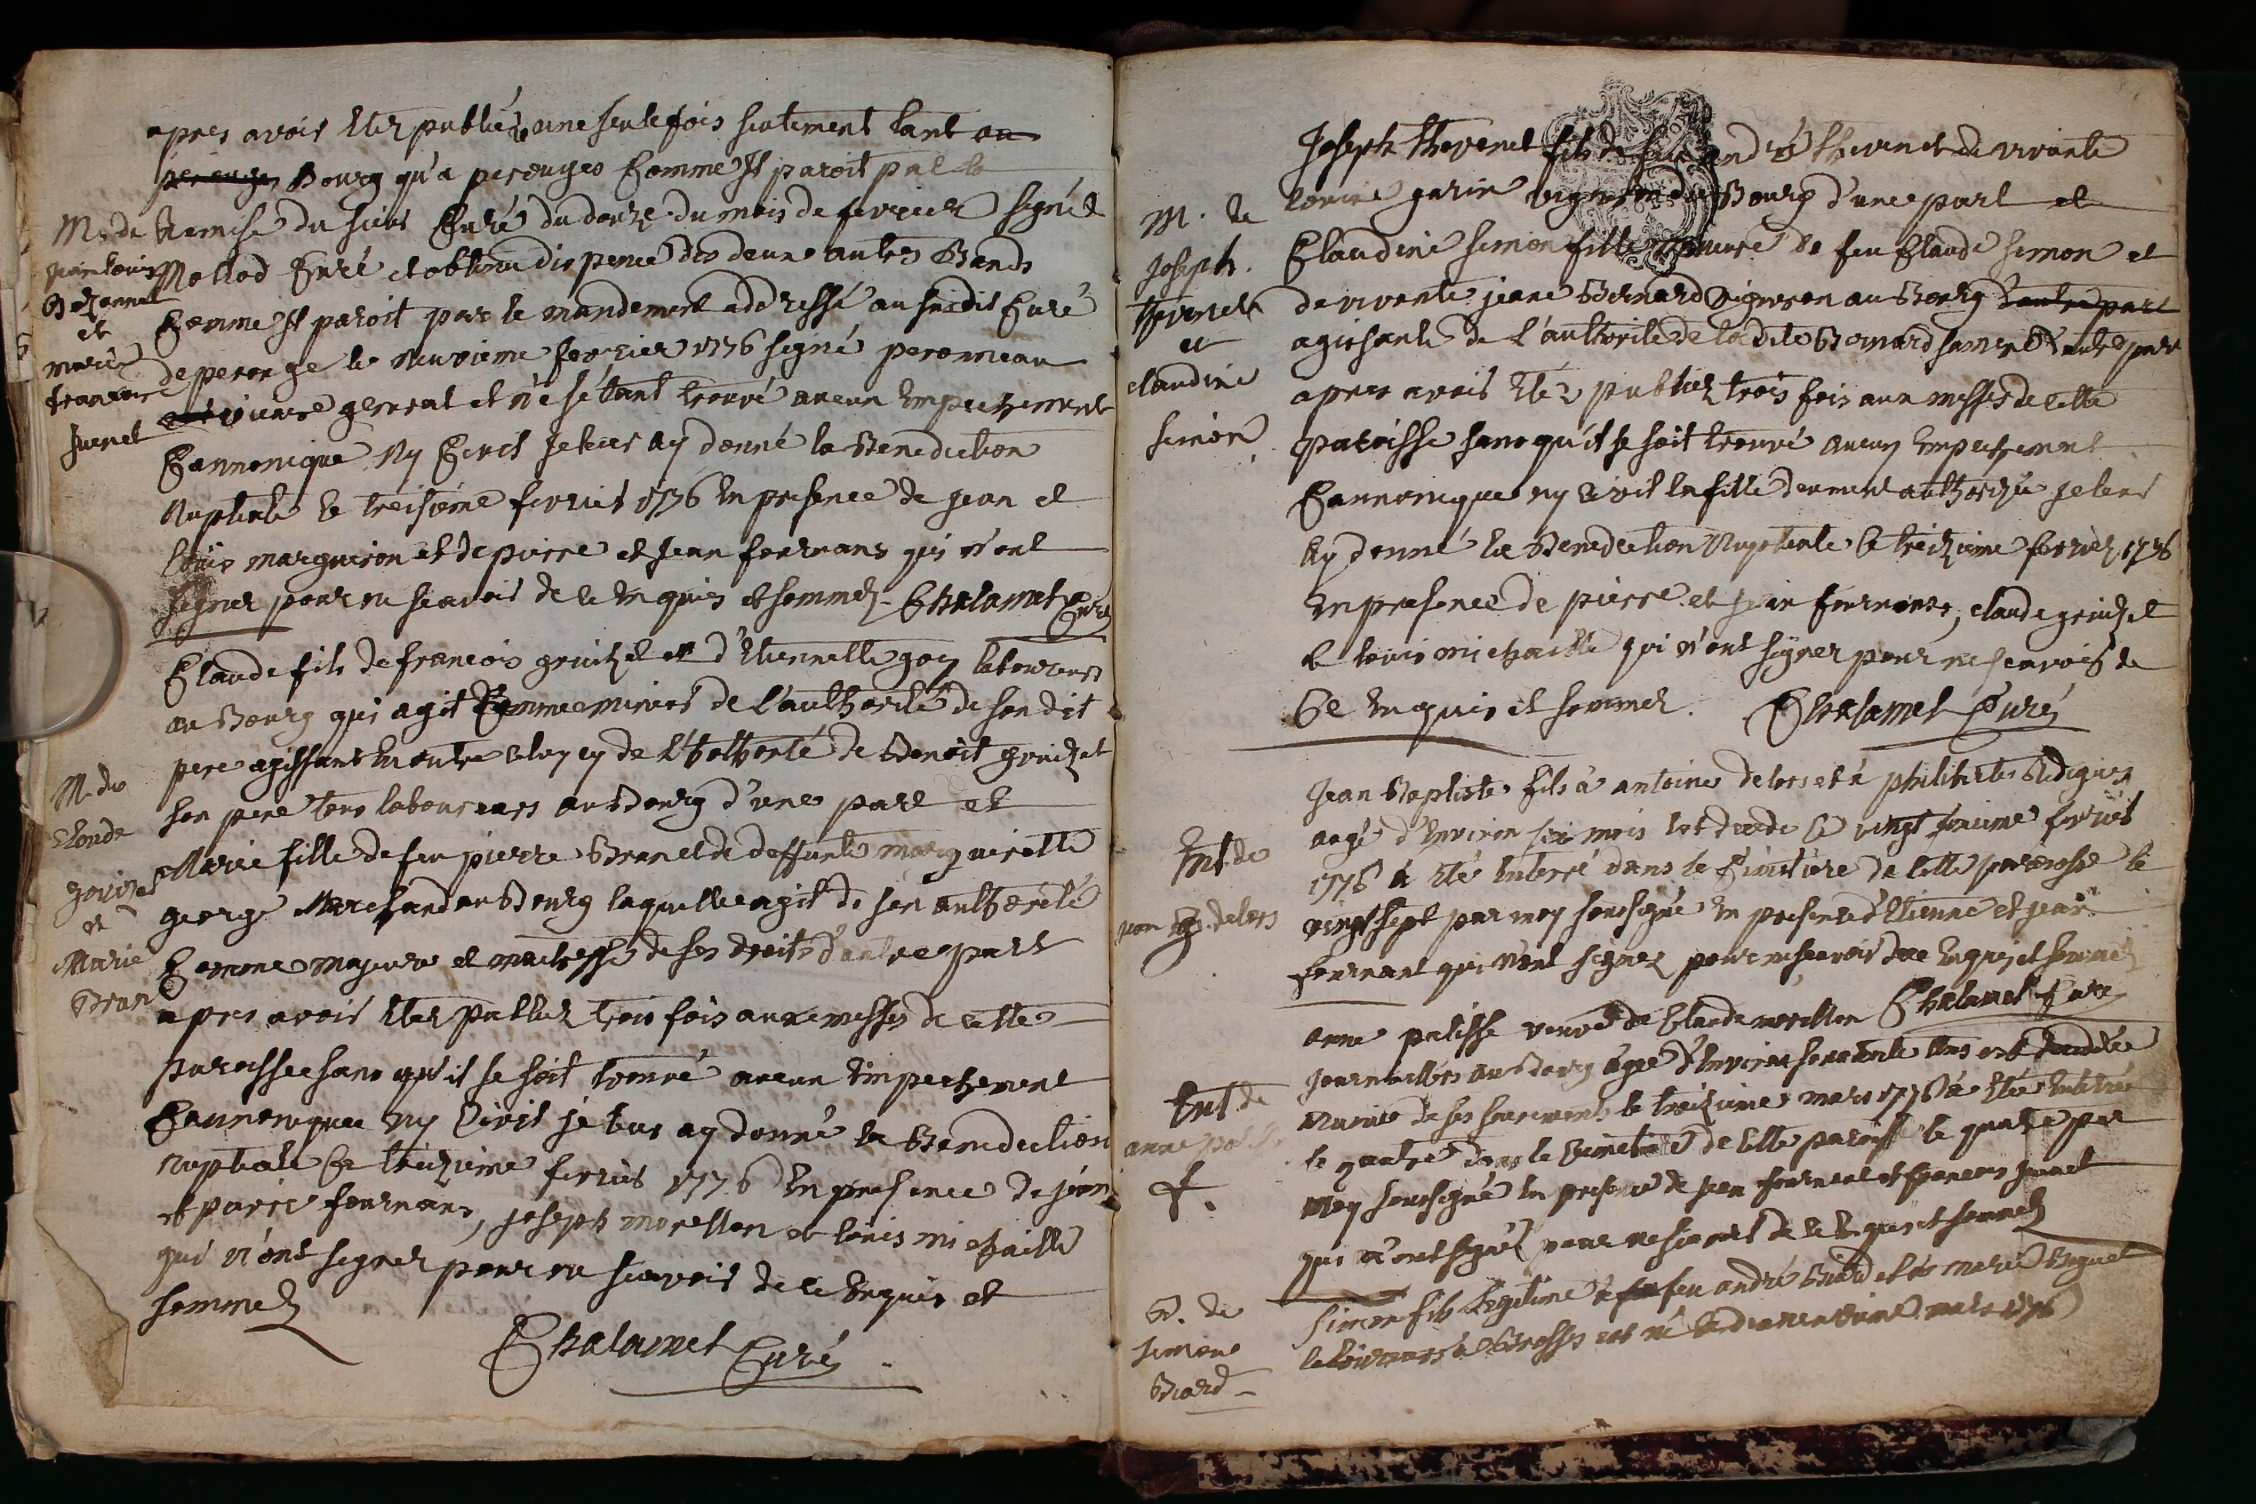 apres avoir étéz publiéz une seule fois seulement tant au
perouges Bourg qu'a perouges Comme Il paroit par la
M. de
jean louis
et
marie
francoise
juenet
Remise du sieur Curé du douze du mois de fevrier signé
Mollod Curé et obtenu dispence des deux autres Bands
Comme Il paroit par le mandement addressé au susdit Curé
de perouge le neuvieme fevrier 1776 signé peronneau
vicaire general et n'e s'étant trouvé aucun Empechement
Cannonique Ny Civil je leur ay donné la Benediction
Nuptiale le treisieme fevrier 1776 En presence de jean et
louis margueron et de pierre et jean fournans qui n'ont
signer pour ne scavoir de ce Enquis et sommez Chalamet Curé
M. de
Claude
gouizet
et
Marie
Brun
Claude fils de francois gouizet et d'Etiennette goy laboureurs
au Bourg qui agit Comme mineur de l'authorité de son dit
pere agissant En outre de l'authorité de Benoit gouizet
son pere tous laboureurs au Bourg d'une part et
Marie fille de feu pierre Brun et de deffunte marguerette
george Marchand au Bourg laquelle agit de son authorité
Comme majeure et maitresse de ses droits d'autre part
apres avoir étéz publiéz trois fois aux messes de cette
paroisse sans qu'il se soit trouvé aucun Empechement
Cannonique Ny Civil je leur ay donné la Benediction
nuptiale Ce treizieme fevrier 1776 En presence de jean
et pierre fournans, joseph morellon et louis michaille
qui n'ont signer pour ne scavoir de ce Enquis et
sommez
Chalamet Curé
M. de
Joseph
thevenet
et
claudine
simon
Joseph thevenet fils de feu andré thevenet de vivante
louise garin vigneron du Bourg d'une part et
Claudine simon fille mineure de feu Claude simon et
de vivante jeane Bernard vigneron au Bourg d'autre part
agissante de l'authorité de ladite Bernard sa mere d'autre part
apres avoir étéz publiéz trois fois aux messes de cette
paroisse sans qu'il se soit trouvé aucun Empechement
Cannonique ny Civil la fille deument authorizée je leur
Ay donné la Benediction Nuptiale le treizieme fevrier 1776
En presence de pierre et jean fournans, claude gouizet
et louis michaille qui n'ont signer pour ne scavoir de
Ce Enquis et sommez. Chalamet Curé
Ent. de
jean B. delors
Jean Baptiste fils à antoine delors et à philiberte
agé d'Environ six mois est decedé le vingt sixieme fevrier
1776 a été Enterré dans le Cimetiere de cette paroisse le
vingt sept par moy soussigné En presence d'Etienne et jean
fournant qui n'ont signer pour ne scavoir de ce Enquis et sommez
Chalamet Curé
Ent. de
anne
f.
anne palisse veuve de Claude morellon
journalliere au Bourg agée d'Environ soixante ans est decedée
munie de ses sacrements le troizieme mars 1776 a été Enterrée
le quatre dans le Cimetiere de cette paroisse le quatre par
Moy soussigné En presence de jean fournant et francois juenet
qui n'ont signéz pour ne scavoir de ce Enquis et sommez
B. de
simon
Biard
Simon fils legitime à feu andré Biard et à marie
laboureurs à Brosses est né mars 1776